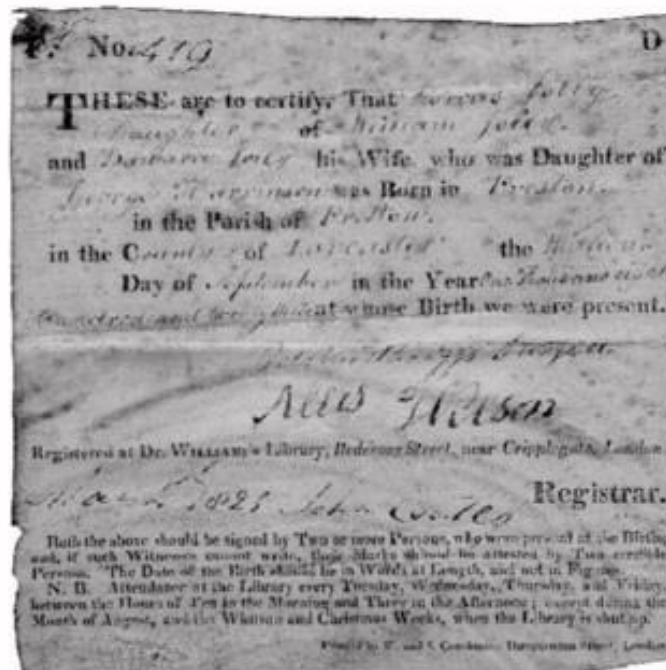 No. 419 D
THESE are to certify, That Dorcas Jolly
Daughter of William Jolly
and his Wife, who was Daughter of
George Harrison was Born in Preston
in the Parish of Preston
in the County of Lancaster the
Day of September in the Year One Thousand eight
hundred and at whose Birth we were present.
Surgeon
Alles Wilson
Registered at Dr. WILLIAM's Library, Redcross Street, near Cripplegate, London.
1825 John Coates
Registrar.
Both the above should be signed by Two or more Persons, who were present at the Birth;
and, if such Witnesses cannot write, their Marks should be attested by Two credible
Persons. The Date of the Birth should be in Words at Length, and not in Figures.
N. B. Attendance at the Library every Tuesday, Wednesday, Thursday, and Friday,
between the Hours of Ten in the Morning and Three in the Afternoon; except during the
Month of August, and the Whitsun and Christmas Weeks, when the Library is shut up.
Printed by Street, London